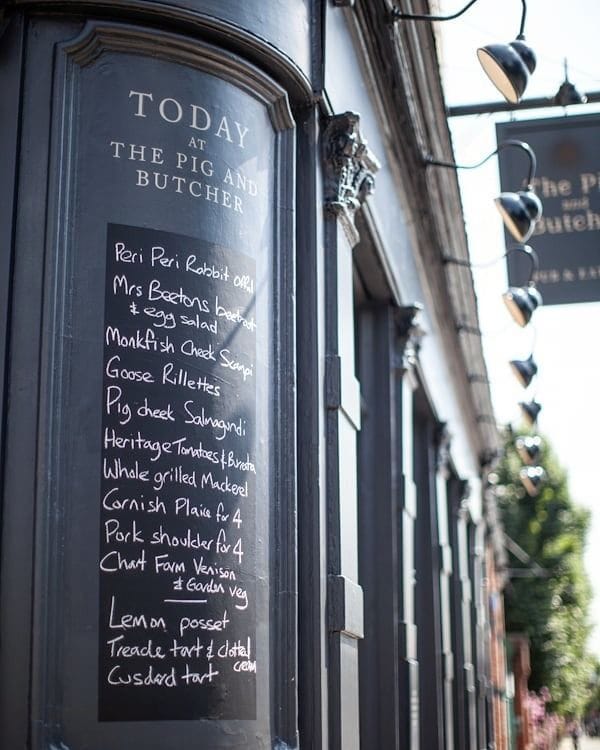 TODAY
AT
THE PIG AND
BUTCHER
Peri Peri Rabbit offal
Mrs Beetons beetroot
& egg salad
Monkfish Cheek Scampi
Goose Rillettes
Pig cheek Salmagundi
Heritage Tomatoes & Burrata
Whole grilled Mackerel
Cornish Plaice for 4
Pork shoulder for 4
Chart Farm Venison
& Garden veg
Lemon posset
Treacle tart & clotted
cream
Cusdard tart
The Pi
and
Butch